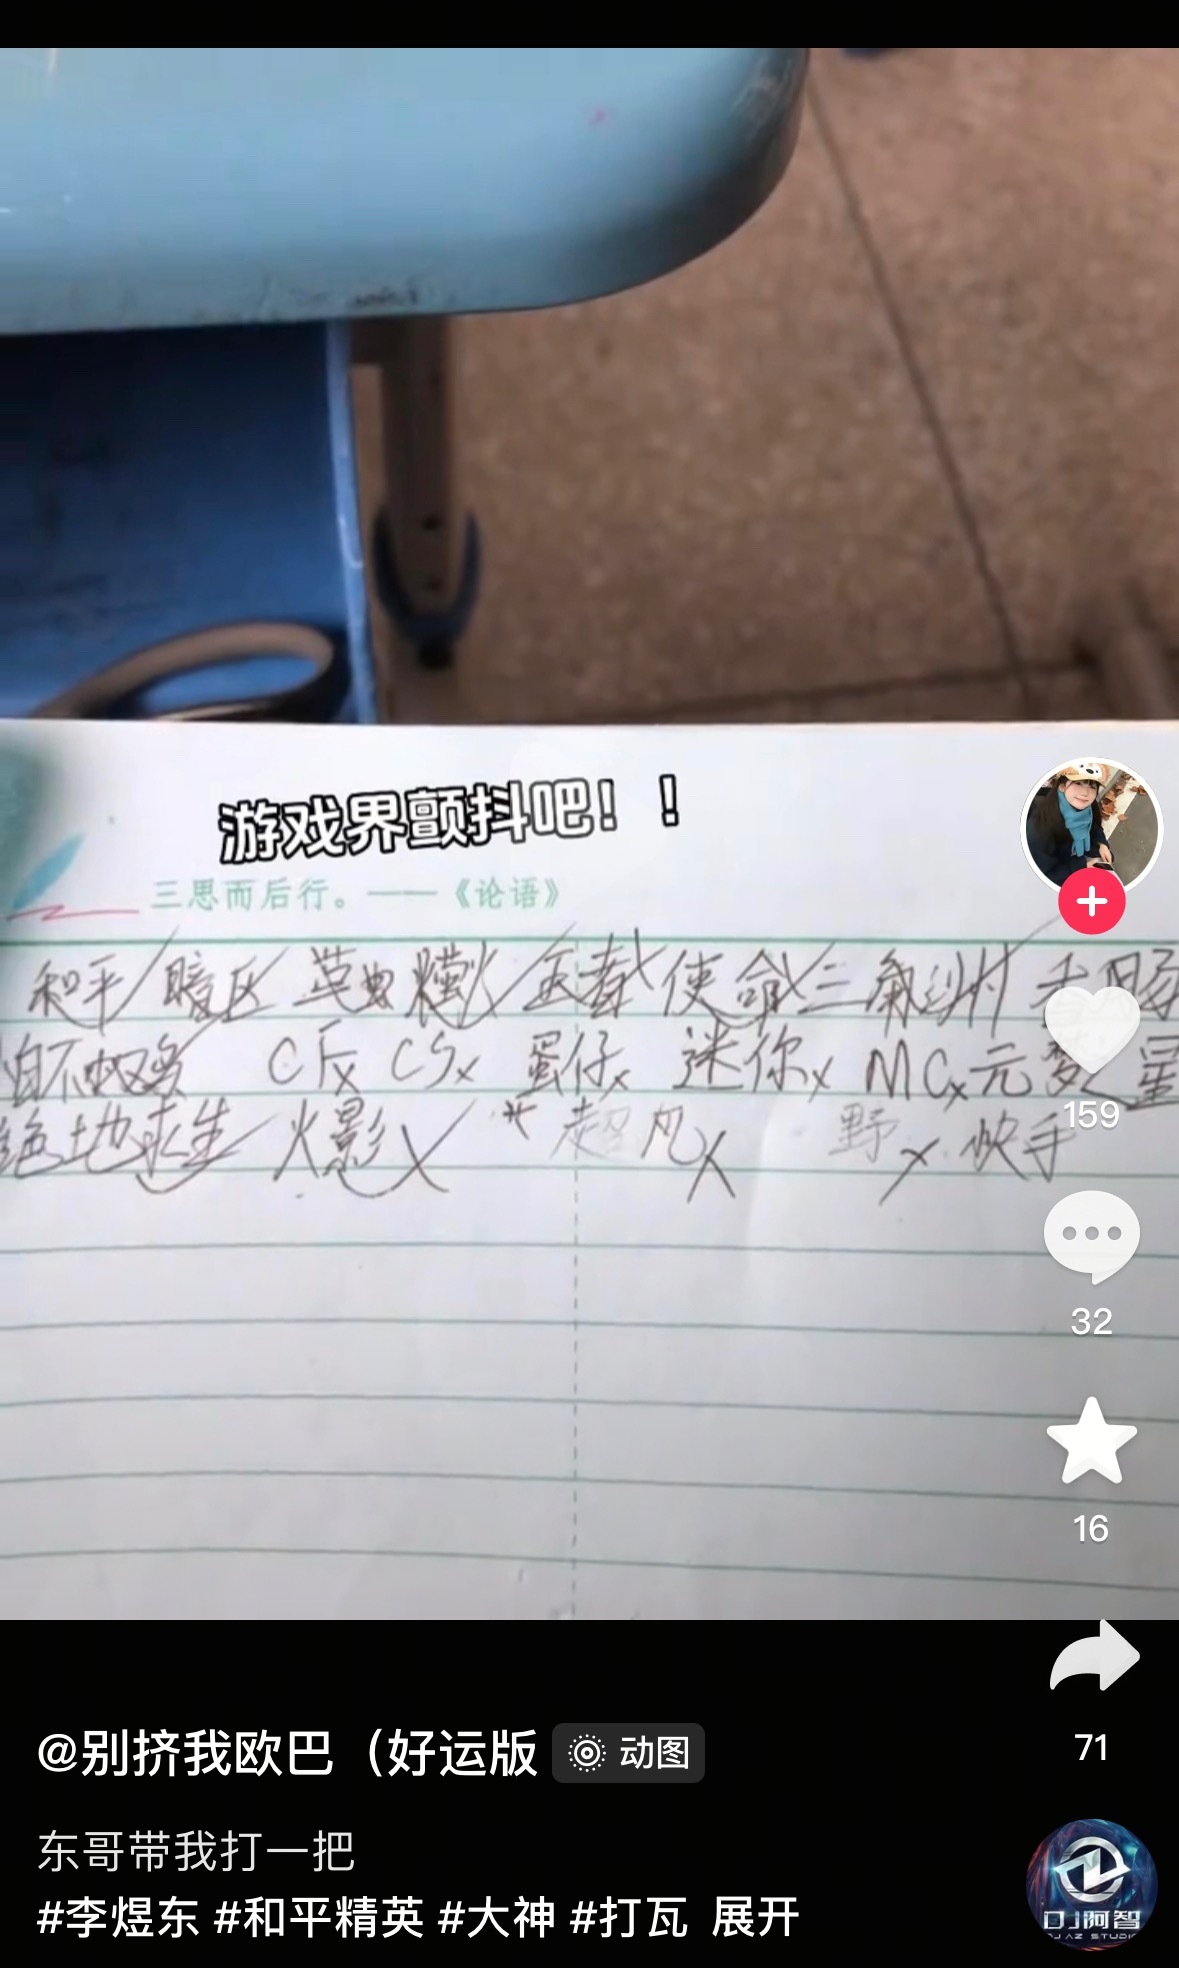 游戏界颤抖吧！！
三思而后行。——《论语》
和平 暗区 使命 三角洲 香肠
CF CS 蛋仔 迷你 MC 元梦之星
绝地求生 火影 超凡 野 快手
159
32
16
71
@别挤我欧巴（好运版
动图
东哥带我打一把
#李煜东 #和平精英 #大神 #打瓦 展开
DJ阿智
DJ AZ STUDIO